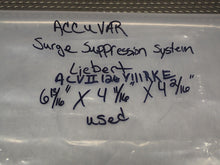 ACCUVAR
Surge Suppression System
Liebert
ACVII126VIIIRKE
6 15/16" X 4 11/16" X 4 3/16"
used